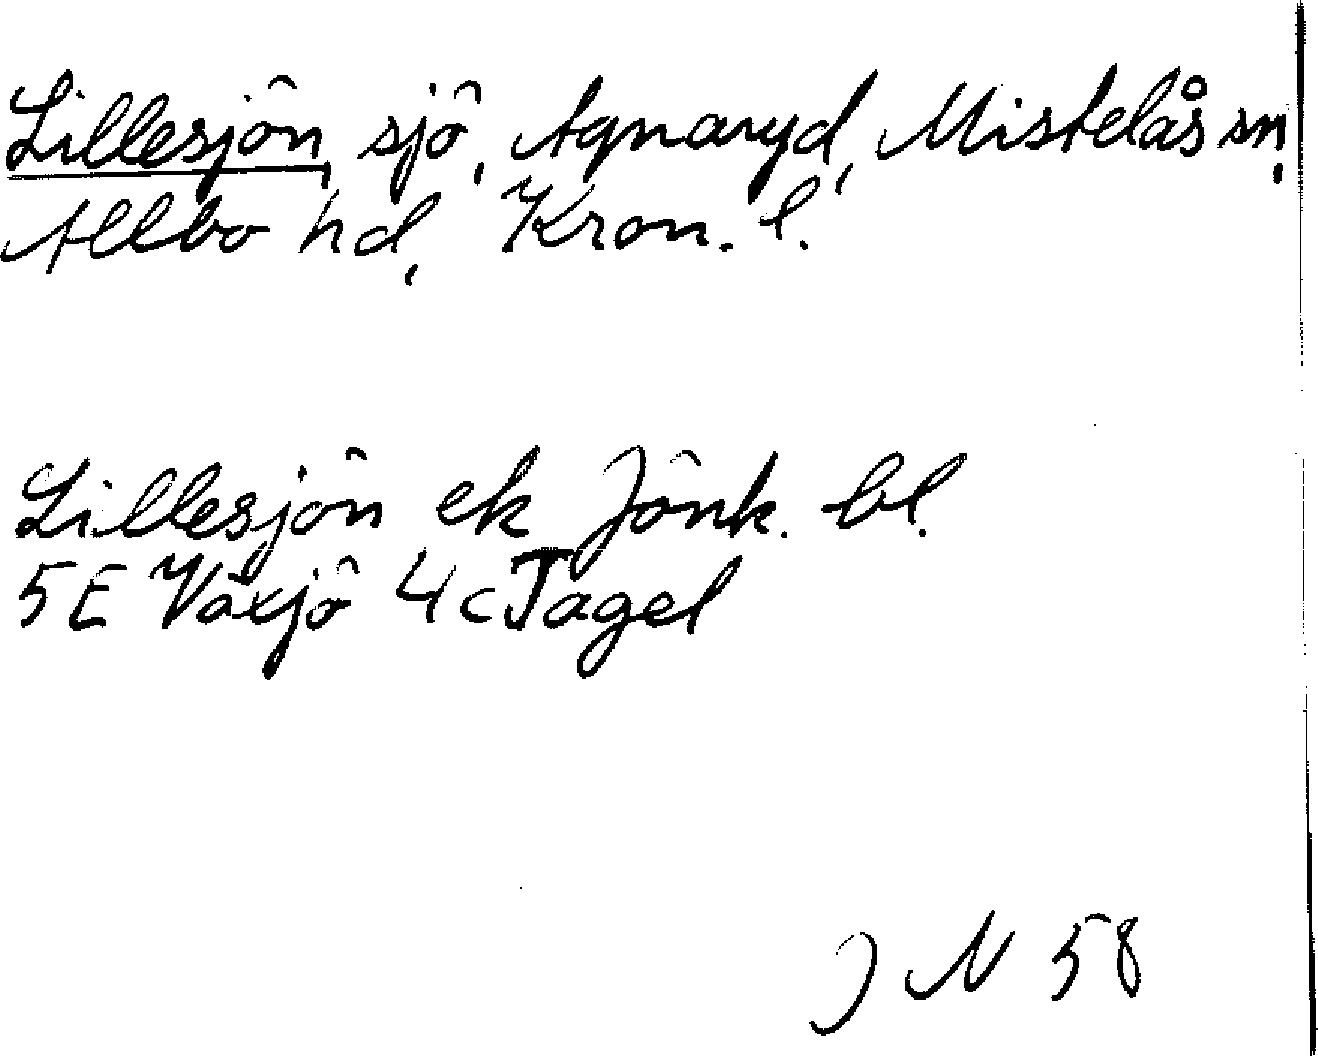 Lillesjön, sjö, Agnaryd, Mistelås sn,
Allbo hd, Kron. l.
Lillesjön ek Jönk. bl.
5E Växjö 4c Tagel
J N 58